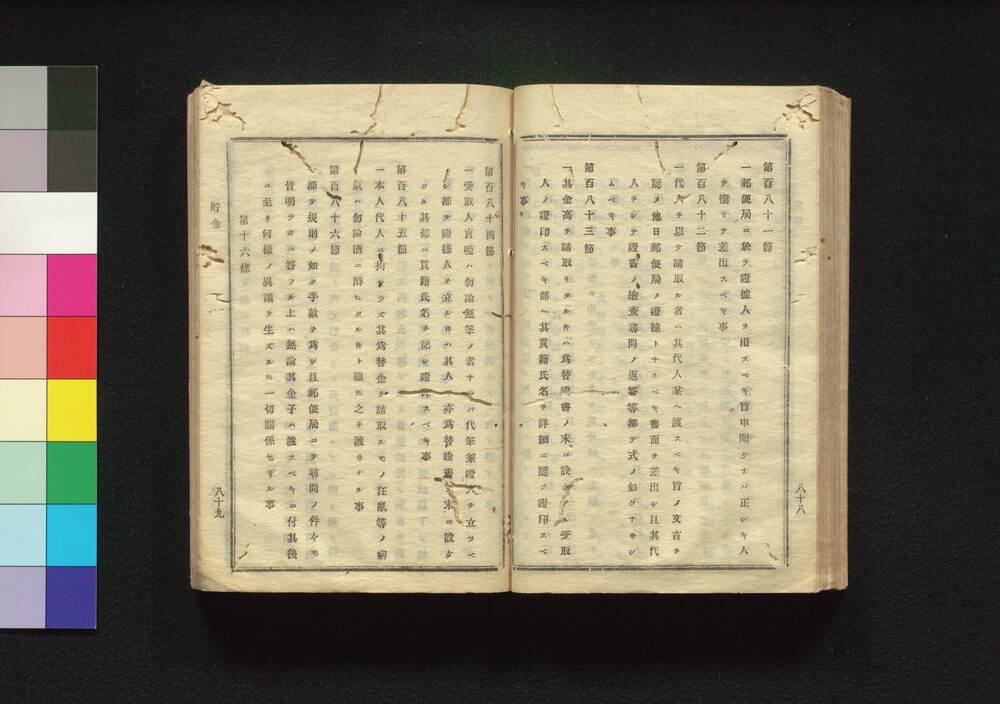 第百八十一節
一郵便局ニ於テ證據人ヲ出スベキ旨申聞ケナバ正シキ人
ヲ撰ミテ差出スベキ事
第百八十二節
一代人ヲ以テ請取ル者ハ其代人某ヘ渡スベキ旨ノ文言ヲ
認メ他日郵便局ノ證據トナルベキ書面ヲ差出シ且其代
人ヲシテ證書ノ檢査尋問ノ返答等都テ式ノ如クナサシ
ムベキ事
第百八十三節
一其金高ヲ請取リタルキハ爲替證書ノ末ニ設ケアル受取
人ノ證印スベキ部ヘ其貫籍氏名ヲ詳細ニ認メ證印スベ
キ事
八十八
第百八十四節
一受取人盲啞ハ勿論無筆ノ者ナラバ代筆兼證人ヲ立ツベ
シ都テ證據人ヲ立ルキハ其人モ亦爲替證書ノ末ニ設ケ
アル其部ニ貫籍氏名ヲ記シ證印スベキ事
第百八十五節
一本人代人ニ拘ハラズ其爲替金ヲ請取ルモノ狂亂等ノ病
氣ハ勿論酒ニ醉ヒタルキト雖モ之ヲ渡サヾル事
第百八十六節
一都テ規則ノ如ク手數ヲ爲シ且郵便局ニテ尋問ノ件々モ
皆明ラカニ答フル上ハ無論其金子ハ渡スベキニ付其後
ニ至リ何樣ノ異議ヲ生ズルモ一切關係セザル事
第十六條
貯金
八十九